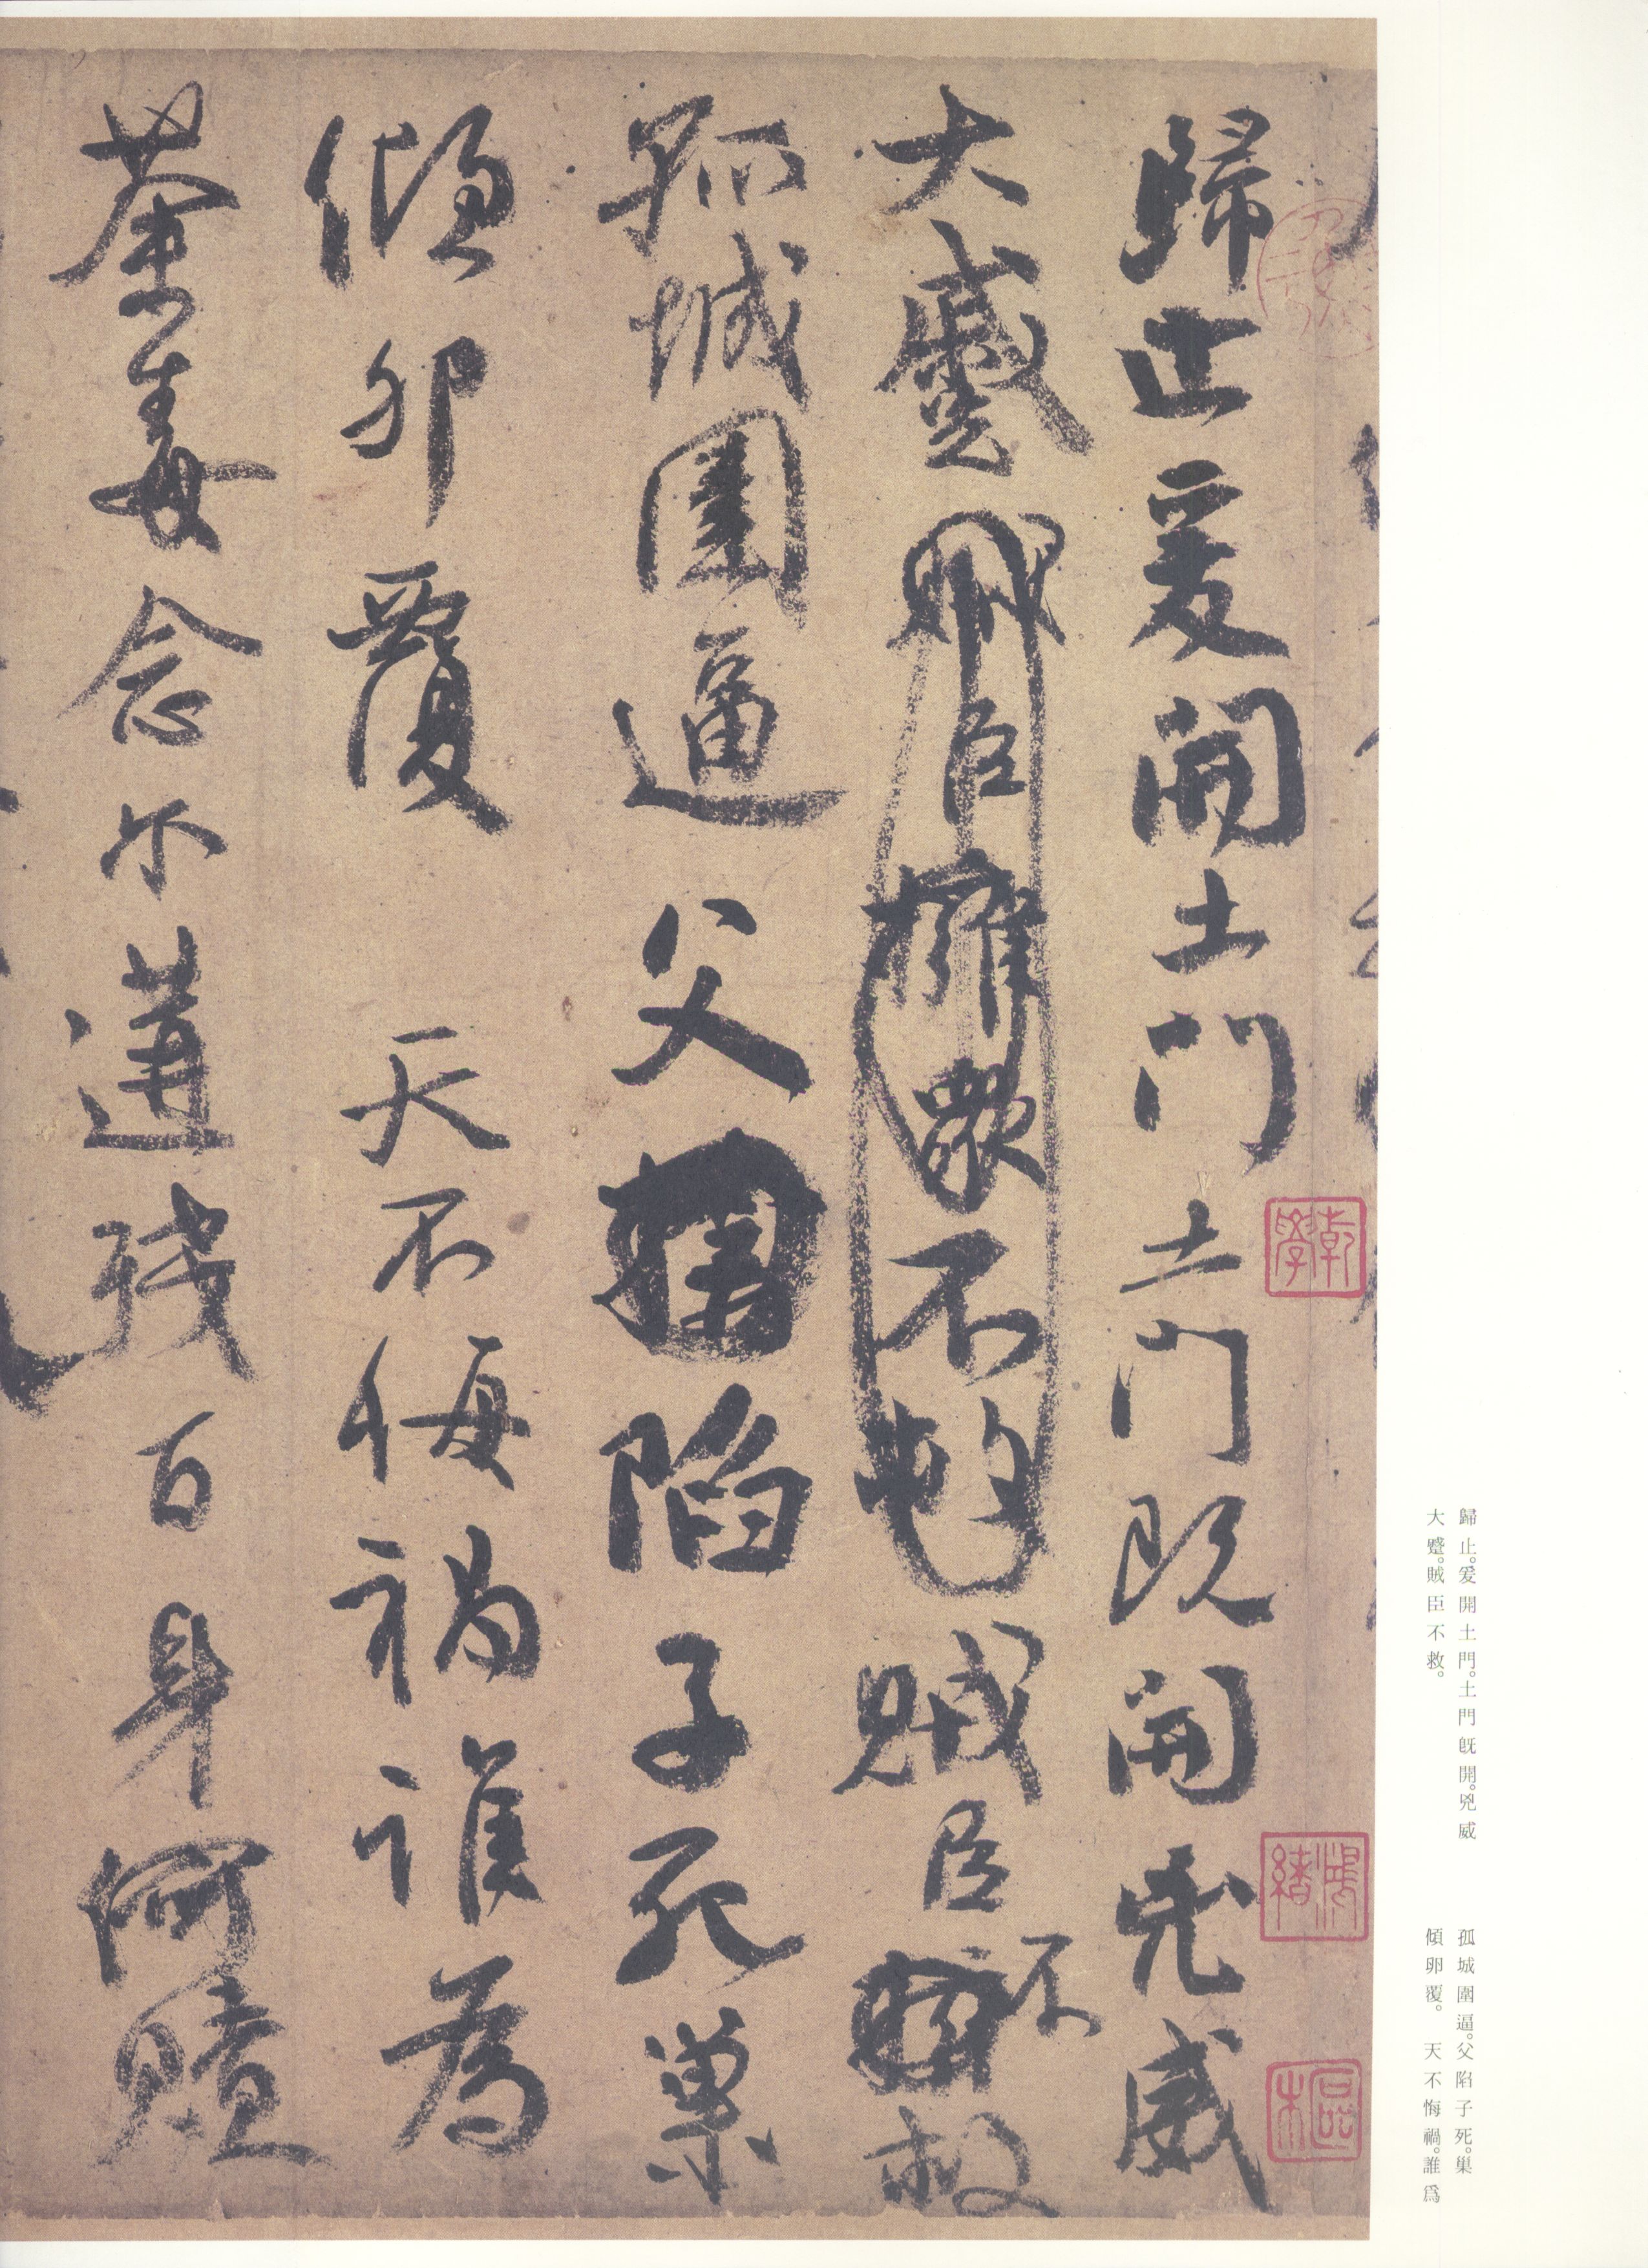 歸止。爰開土門。土門既開。兇威
大蹙。賊臣不救。
孤城圍逼。父陷子死。巢
傾卵覆。 天不悔禍。誰爲
乾學
歸止爰開土門土門既開兇威
大蹙賊臣擁衆不救賊臣不救
孤城圍逼父陷子死巢
傾卵覆 天不悔禍誰為
荼毒念尔遘殘百身何贖